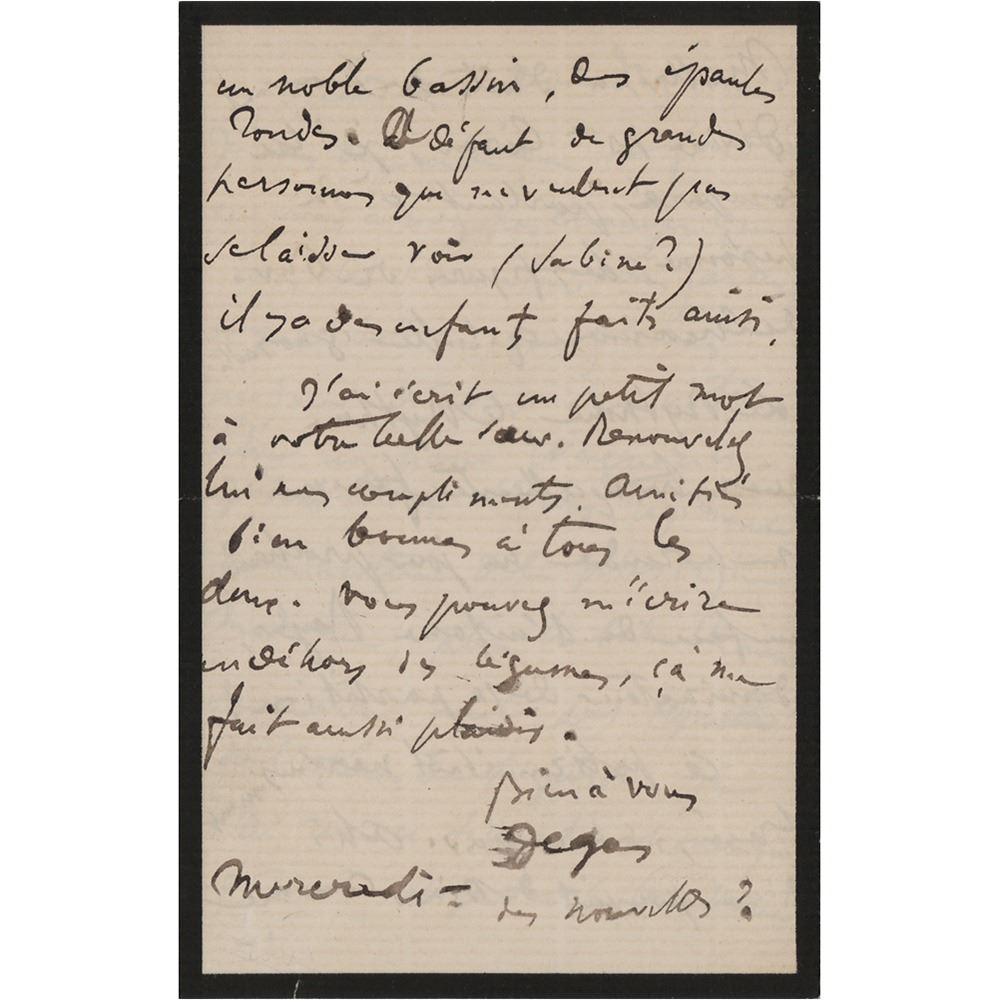 un noble bassin, des épaules
rondes. A défaut de grandes
personnes qui ne veulent pas
se laisser voir (Sabine?)
il y a des enfants faits ainsi.
J'ai écrit un petit mot
à votre belle sœur. Renouvelez
lui mes compliments. Amitiés
bien bonnes à tous les
deux. Vous pouvez m'écrire
en dehors des légumes, çà me
fait aussi plaisir.
Bien à vous
Degas
Mercredi —
des nouvelles ?